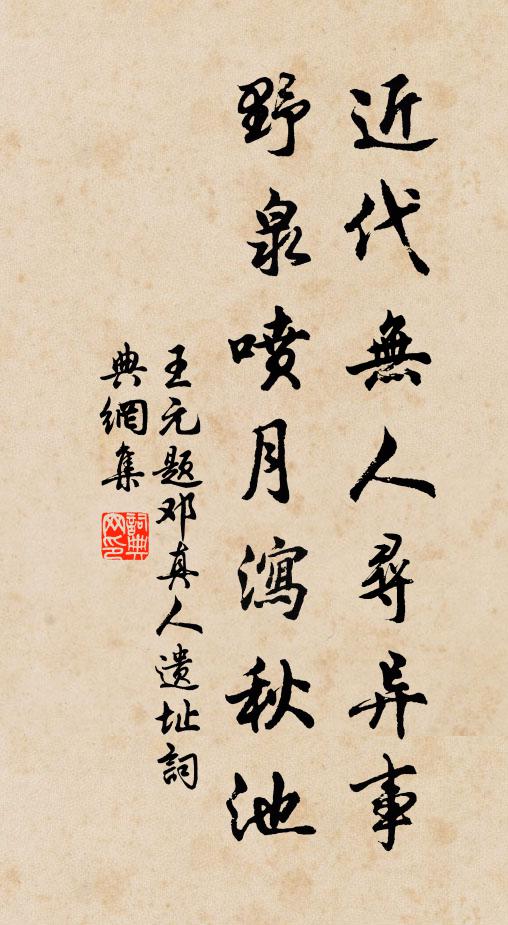 近代無人尋异事
野泉噴月瀉秋池
王元题邓真人遺址詞
典網集
詞典
网印